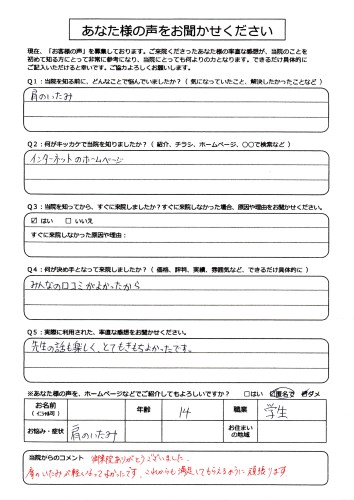 あなた様の声をお聞かせください
現在、「お客様の声」を募集しております。ご来院くださったあなた様の率直な感想が、当院のことを
初めて知る方にとって非常に参考になり、当院にとっても何よりの力となります。できるだけ具体的に
ご記入いただけると幸いです。ご協力よろしくお願いします。
Q1：当院を知る前に、どんなことで悩んでいましたか？（気になっていたこと、解決したかったことなど）
肩のいたみ
Q2：何がキッカケで当院を知りましたか？（紹介、チラシ、ホームページ、〇〇で検索など）
インターネットのホームページ
Q3：当院を知ってから、すぐに来院しましたか？すぐに来院しなかった場合、原因や理由をお聞かせください。
☑ はい　□ いいえ
すぐに来院しなかった原因や理由：
Q4：何が決め手となって来院しましたか？（価格、評判、実績、雰囲気など、できるだけ具体的に）
みんなの口コミがよかったから
Q5：実際に利用された、率直な感想をお聞かせください。
先生の話も楽しく、とてもきもちよかったです。
※あなた様の声を、ホームページなどでご紹介してもよろしいですか？　□はい　☑匿名で　□ダメ
お名前
（イニシャル可）
年齢
14
職業
学生
お悩み・症状
肩のいたみ
お住まい
の地域
当院からのコメント　御来院ありがとうございました。
肩のいたみが軽くなってよかったです。これからも満足してもらえるように頑張ります。